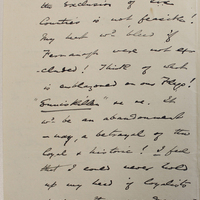 the exclusion of six
Counties is not feasible!
My heart wd. bleed if
Fermanagh were not ex-
cluded! Think of what
is emblazoned on our Flags!
"Enniskillen" &c &c. It
wd. be an abandonment
– nay, a betrayal of the
loyal & historic! I feel
that I could never hold
up my head if loyalists